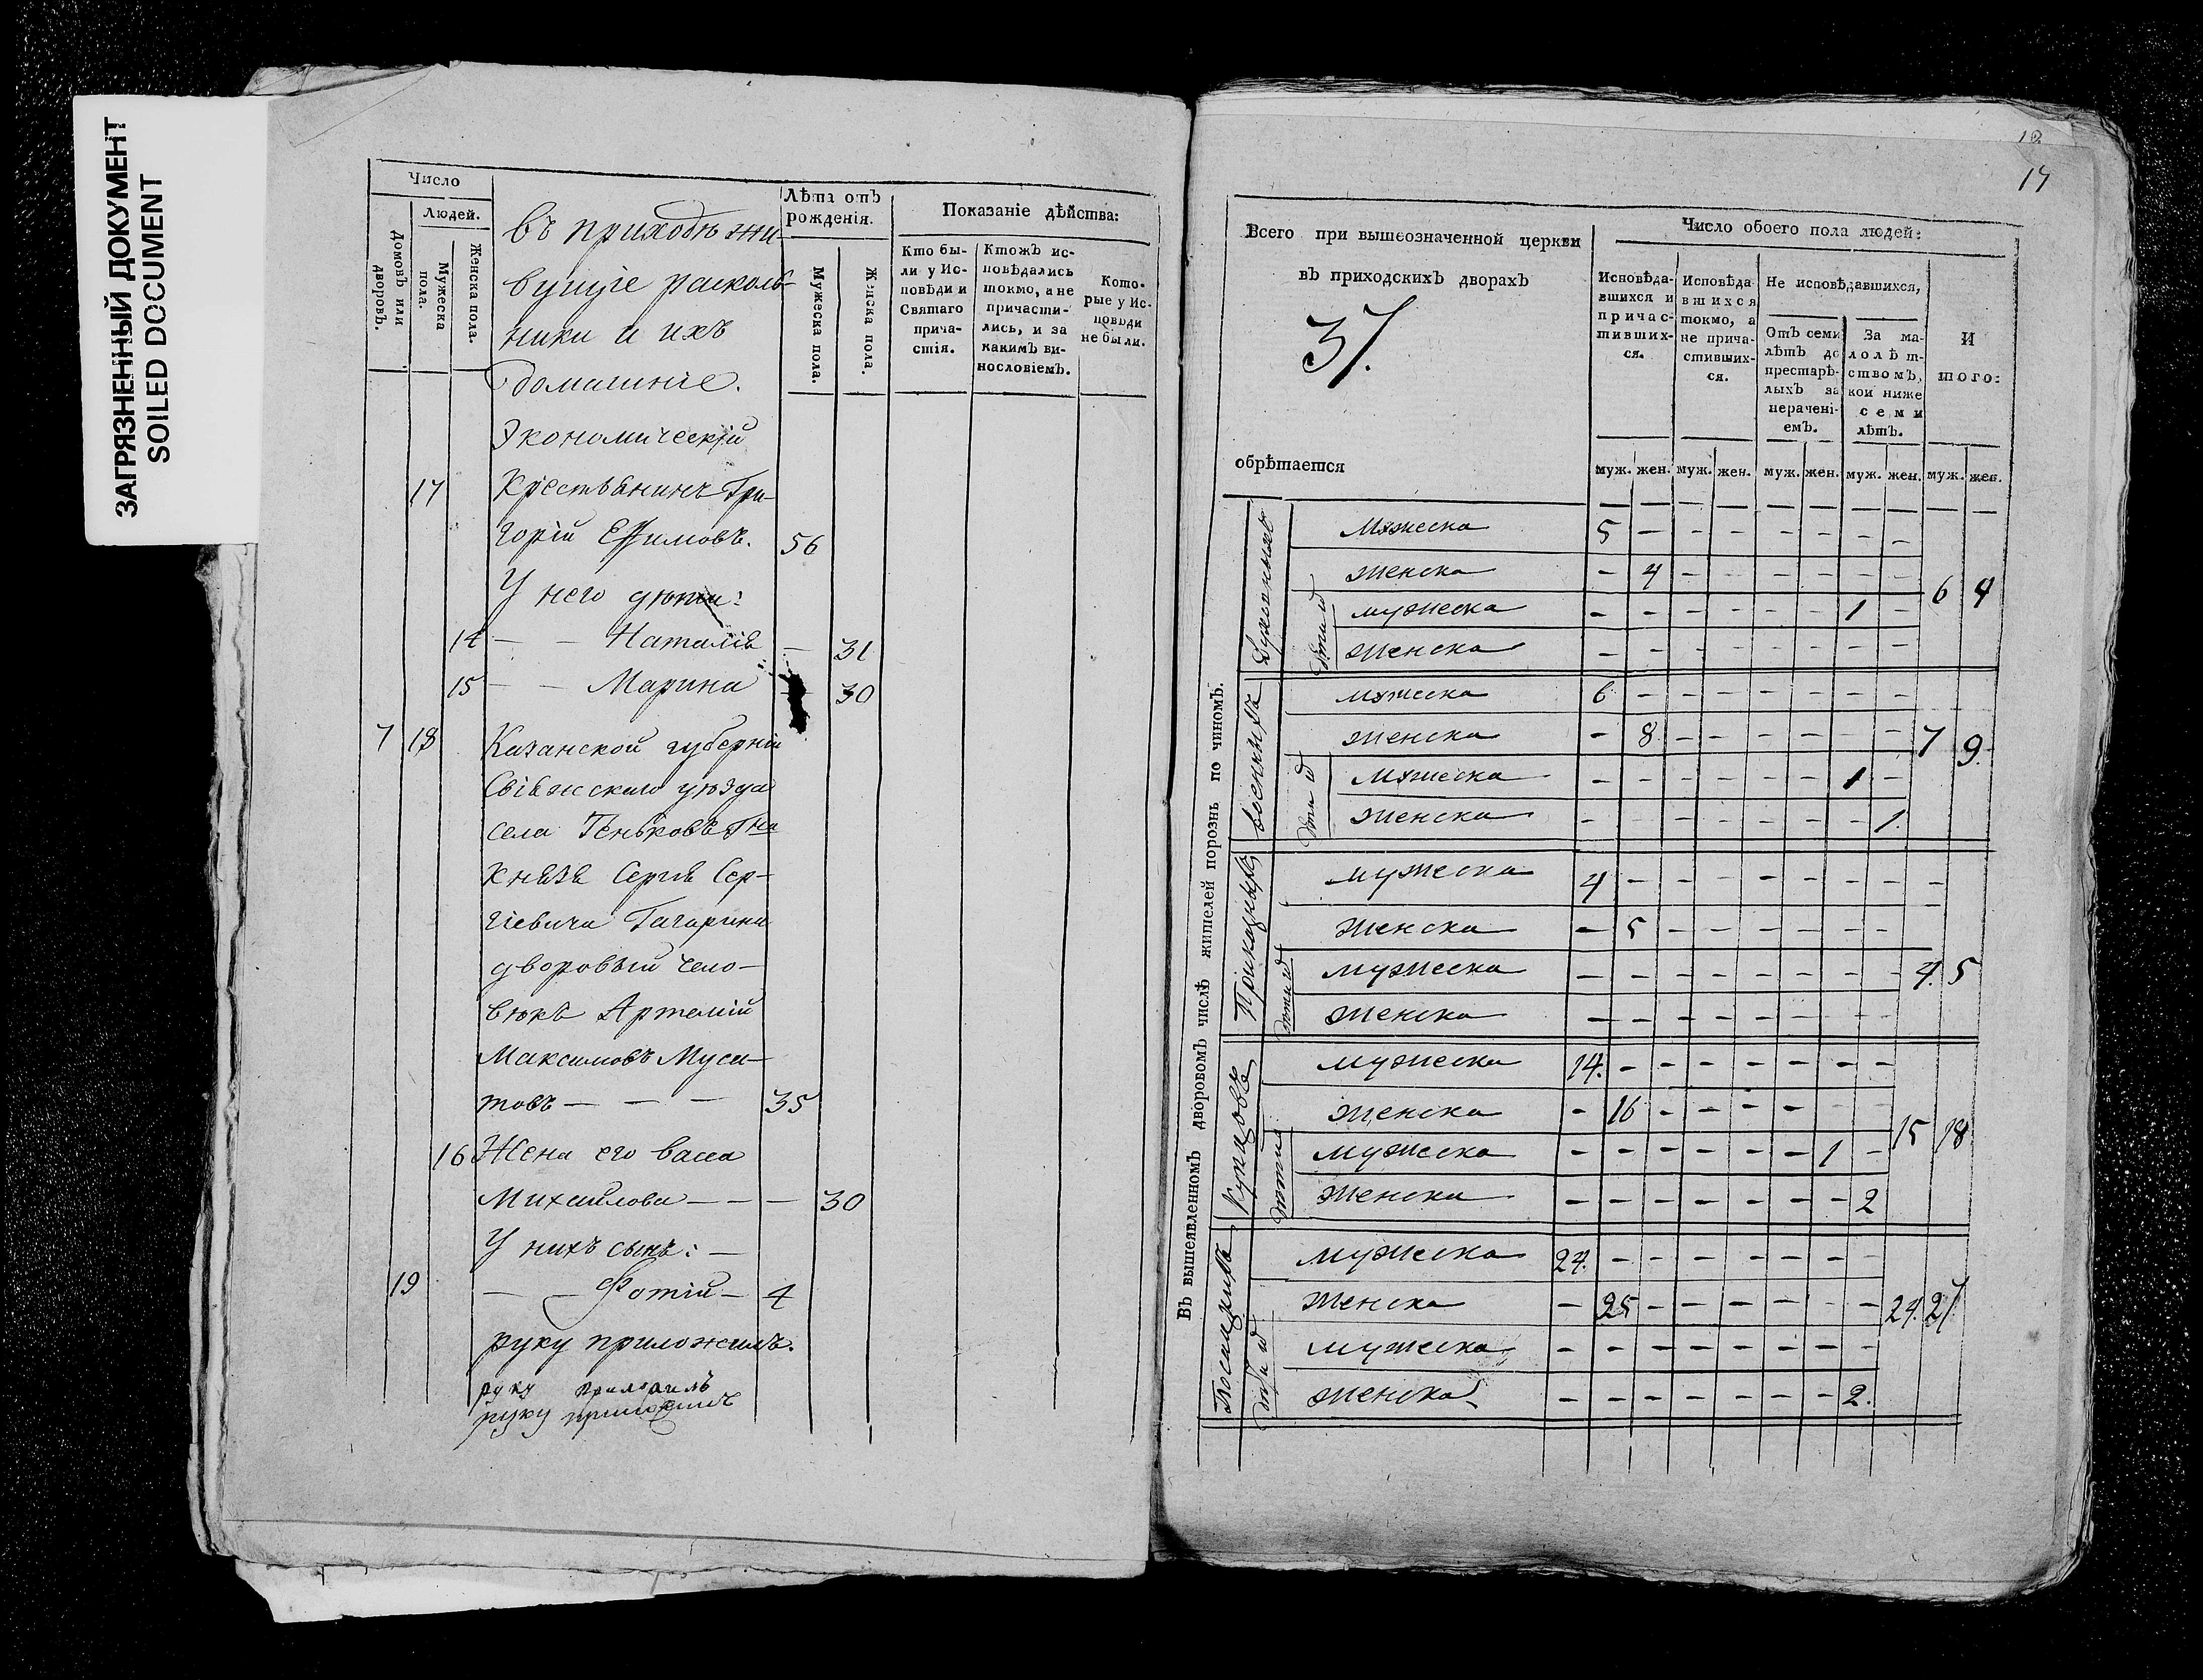 ЗАГРЯЗНЕННЫЙ ДОКУМЕНТ
SOILED DOCUMENT
Число
Людей.
Домовъ или дворовъ.
Мужеска пола.
Женска пола.
Лѣта отъ рожденія.
Мужеска пола.
Женска пола.
Показаніе дѣйства:
Кто были у Исповѣди и Святаго причастія.
Ктожъ исповѣдались токмо, а не причастились, и за какимъ винословіемъ.
Которые у Исповѣди не были.
въ приходѣ жи-
вущіе расколь-
ники и ихъ
домашніе.
Экономическій
17 Крестьянинъ Гри-
горій Ефимовъ. 56
У него дѣти:
14 — — Наталія — 31
15 — — Марина — 30
7 18 Казанской губерніи
Свіяжскаго уѣзда
села Теньковъ Гна
Князя Сергія Сер-
гіевича Гагарина
дворовый чело-
вѣкъ Артемій
Максимовъ Муса-
товъ — — — 35
16 Жена его васса
Михайлова — — — 30
У нихъ сынъ: —
19 — — Фотій — 4
руку приложилъ.
руку приложилъ
руку приложилъ
12
14
Всего при вышеозначенной церкви
въ приходскихъ дворахъ
37.
обрѣтается
Число обоего пола людей:
Исповѣдавшихся и причастившихся.
Исповѣдавшихся токмо, а не причастившихся.
Не исповѣдавшихся,
Отъ семи лѣтъ до престарѣлыхъ за нераченіемъ.
За малолѣтствомъ, кои ниже семи лѣтъ.
И того:
муж. жен. муж. жен. муж. жен. муж. жен. муж. жен.
Въ вышеявленномъ дворовомъ числѣ жителей порознь по чиномъ.
Духовныхъ
Мужеска 5 — — — — — — —
Женска — 4 — — — — — —
дѣтей
мужеска — — — — — — 1 —
женска — — — — — — — —
6 4
военныхъ
Мужеска 6 — — — — — — —
женска — 8 — — — — — —
дѣтей
Мужеска — — — — — — 1 —
женска — — — — — — — 1.
7 9.
Приказныхъ
мужеска 4 — — — — — — —
женска — 5 — — — — — —
дѣтей
мужеска — — — — — — — —
женска — — — — — — — —
4. 5
Купцовъ
мужеска 14. — — — — — — —
женска — 16 — — — — — —
дѣтей
мужеска — — — — — — 1 —
женска — — — — — — — 2
15 18
Посадскихъ
мужеска 24. — — — — — — —
женска — 25 — — — — — —
дѣтей
мужеска — — — — — — — —
женска — — — — — — — 2.
24. 27